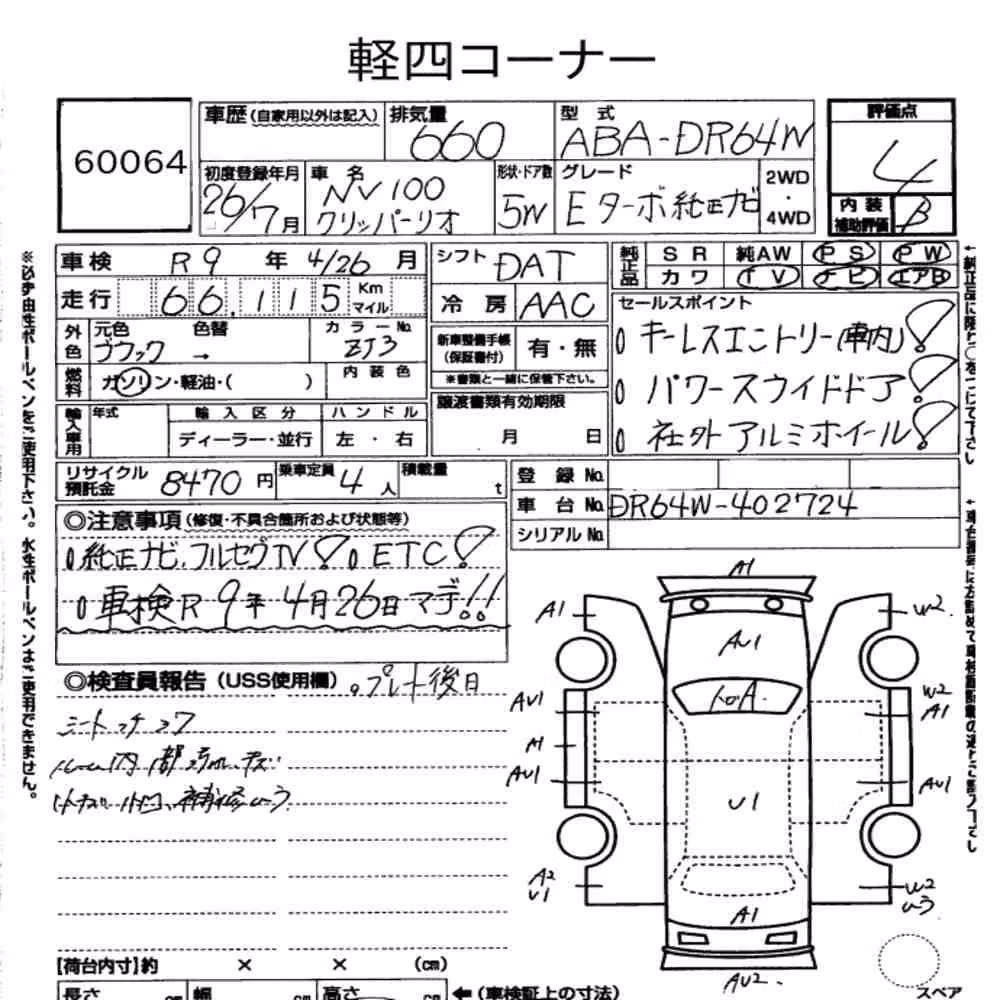 軽四コーナー
60064
車歴 (自家用以外は記入)
排気量
660
型式
ABA-DR64W
評価点
4
初度登録年月
26/7月
車名
NV100
クリッパーリオ
形状・ドア数
5W
グレード
Eターボ純正ナビ
2WD
・
4WD
内装
補助評価
B
車検 R9 年 4/26 月
シフト
DAT
純正品
SR 純AW PS PW
カワ TV ナビ エアB
走行 66,115 Km マイル
冷房 AAC
セールスポイント
キーレスエントリー(車内)!
パワースライドドア!
社外アルミホイール!
外色
元色
ブラック
色替
→
カラーNo.
ZJ3
新車整備手帳
(保証書付)
有・無
※書類と一緒に保管下さい。
燃料
ガソリン・軽油・( )
内装色
譲渡書類有効期限
月 日
輸入車用
年式
輸入区分
ディーラー・並行
ハンドル
左・右
リサイクル
預託金
8470円
乗車定員
4人
積載量
t
登録No.
車台No. DR64W-402724
シリアルNo.
◎注意事項 (修復・不具合箇所および状態等)
純正ナビ、フルセグTV! ETC!
車検R9年4月26日マデ!!
◎検査員報告 (USS使用欄)
プレート後日
シートコゲ
A1
A1
W2
AU1
AU1
W2
A1
A1
AU1
U1
AU1
A2
U1
W2
A1
AU2
スペア
[荷台内寸]約 × × (cm)
長さ cm 幅 cm 高さ cm
←(車検証上の寸法)
※必ず油性ボールペンをご使用下さい。水性ボールペンはご使用できません。